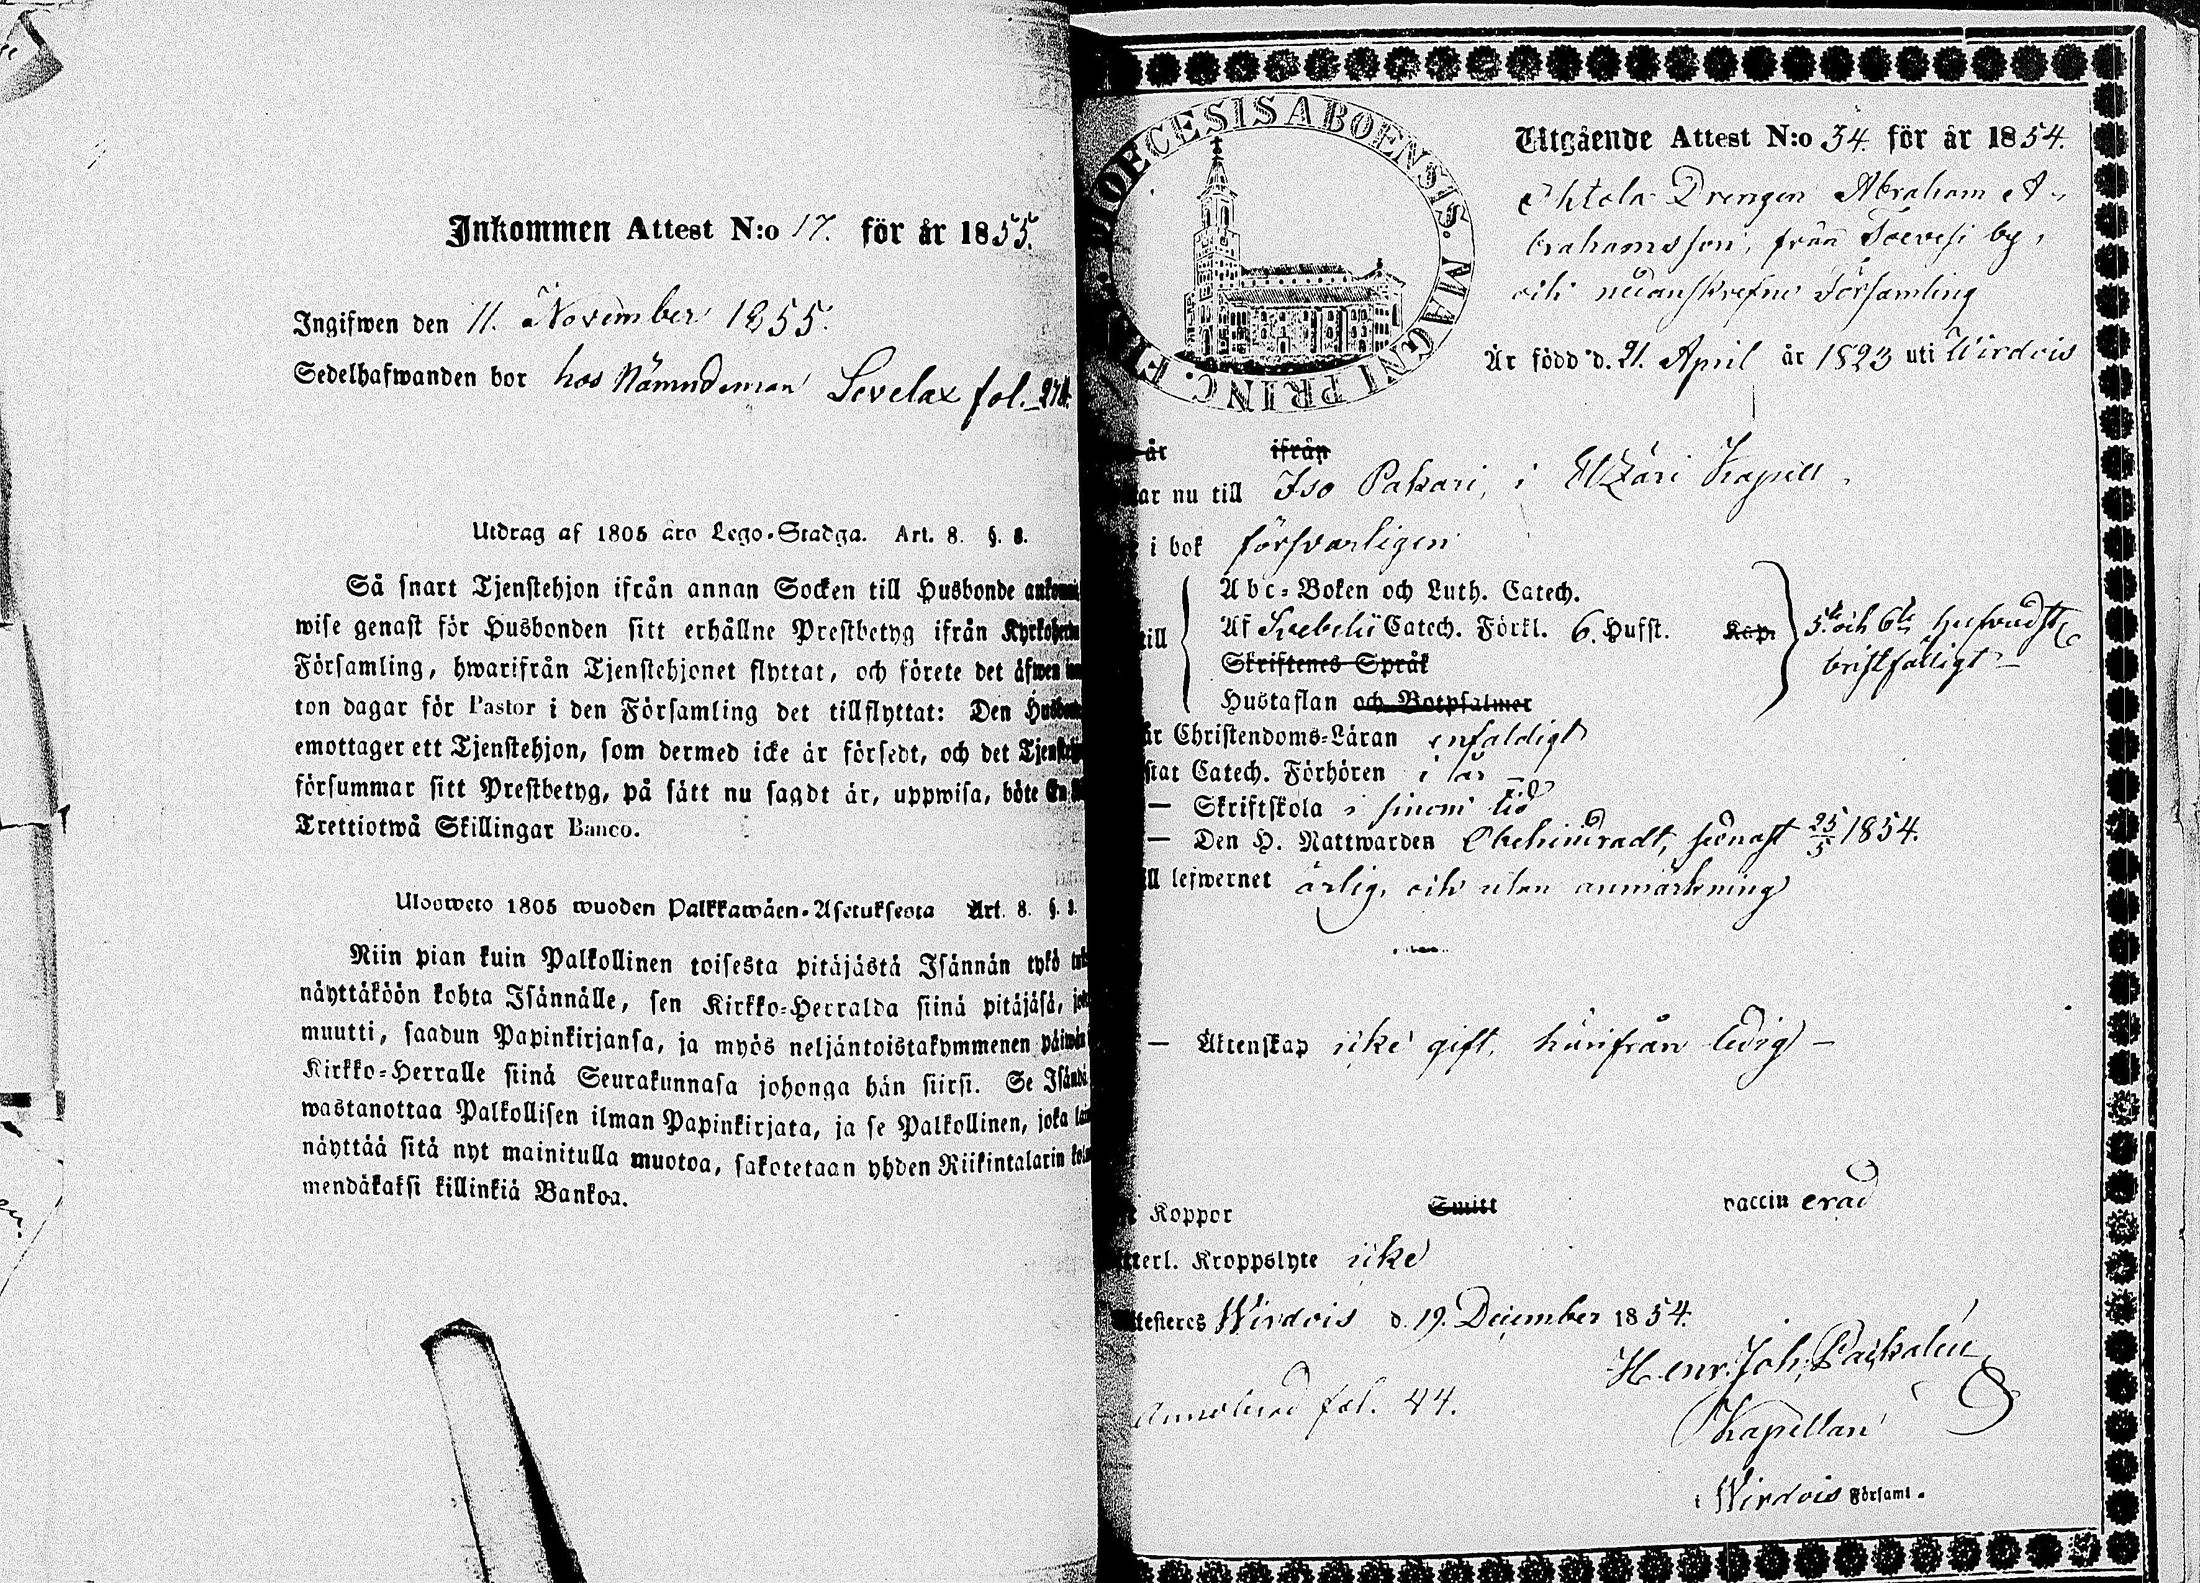 Inkommen Attest N:o 17. för år 1855.
Ingifwen den 11. November 1855.
Sedelhafwanden bor hos Nämndeman Levelax fol. 274.
Utdrag af 1805 års Lego-Stadga. Art. 8. §. 8.
Så snart Tjenstehjon ifrån annan Socken till Husbonde
wise genast för Husbonden sitt erhållne Prestbetyg ifrån
Församling, hwarifrån Tjenstehjonet flyttat, och förete det äfwen
ton dagar för Pastor i den Församling det tillflyttat: Den
emottager ett Tjenstehjon, som dermed icke är försedt, och det
försummar sitt Prestbetyg, på sätt nu sagdt är, uppwisa, böte En
Trettiotwå Skillingar Banco.
Ulosweto 1805 wuoden Palkkawäen-Asetuksesta Art. 8. §. 8.
Niin pian kuin Palkollinen toisesta pitäjästä Isännän tykö
näyttäköön kohta Isännälle, sen Kirkko-Herralda siinä pitäjäsä,
muutti, saadun Papinkirjansa, ja myös neljäntoistakymmenen
Kirkko-Herralle siinä Seurakunnasa johonga hän siirsi. Se
wastanottaa Palkollisen ilman Papinkirjata, ja se Palkollinen, joka
näyttää sitä nyt mainitulla muotoa, sakotetaan yhden Riikintalarin
mendäkaksi killinkiä Bankoa.
DIOECESIS ABOENSIS. MAGNI PRINC.
Utgående Attest N:o 34. för år 1854.
Drengen Abraham A-
brahamsson, från by,
och nedanskrefne Församling
Är född d. 21. April år 1823 uti Wirdois
år ifrån
ar nu till Iso Pakari, i Kapell
i bok försvarligen
Abc-Boken och Luth. Catech.
Af Svebelii Catech. Förkl. 6. Hufst. Kap. 5te och 6te hufvudst
till Skriftenes Språk bristfälligt
Hustaflan och Botpsalmer
är Christendoms-Läran enfaldigt
stat Catech. Förhören i år
— Skriftskola i sinom tid
— Den H. Nattwarden Obehindradt, senast 25/5 1854.
ll lefwernet ärlig, och utan anmärkning
— Äktenskap icke gift, härifrån ledig —
Koppor Smitt vaccinerad
tterl. Kroppslyte icke
ttesteres Wirdois d. 19. December 1854.
Henr. Joh.
fol. 44.
Kapellan
i Wirdois Församl.